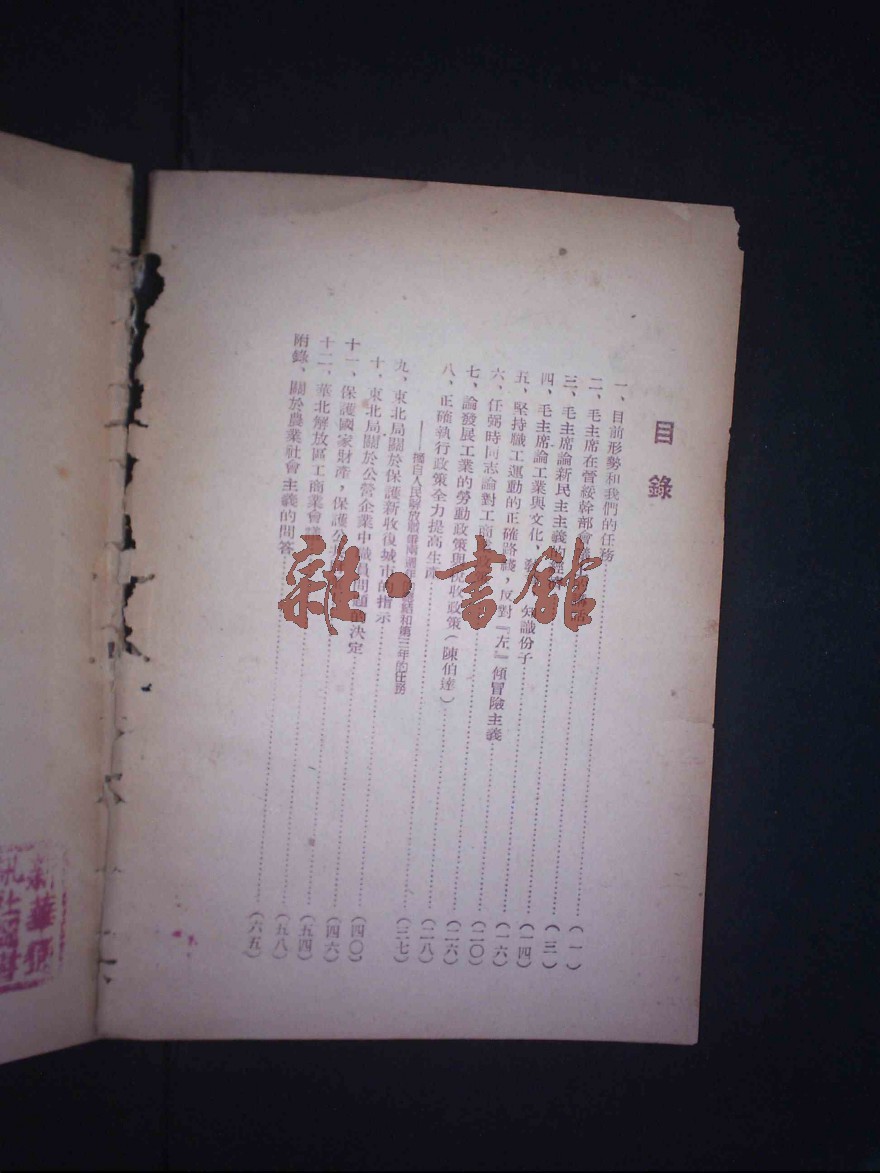 目錄
一、目前形勢和我們的任務
二、毛主席在晉綏幹部會
三、毛主席論新民主主義的
四、毛主席論工業與文化,知識份子
五、堅持職工運動的正確路綫,反對『左』傾冒險主義
六、任弼時同志論對工商
七、論發展工業的勞動政策與稅收政策(陳伯達)
八、正確執行政策全力提高生產
——摘自人民解放戰爭兩週年總結和第三年的任務
九、東北局關於保護新收復城市的指示
十、東北局關於公營企業中職員問題的決定
十一、保護國家財產,保護公
十二、華北解放區工商業會議
附錄、關於農業社會主義的問答
(一)
(三)
(一四)
(一六)
(二〇)
(二六)
(二八)
(三七)
(四〇)
(四六)
(五四)
(五八)
(六五)
雜·書館
新華